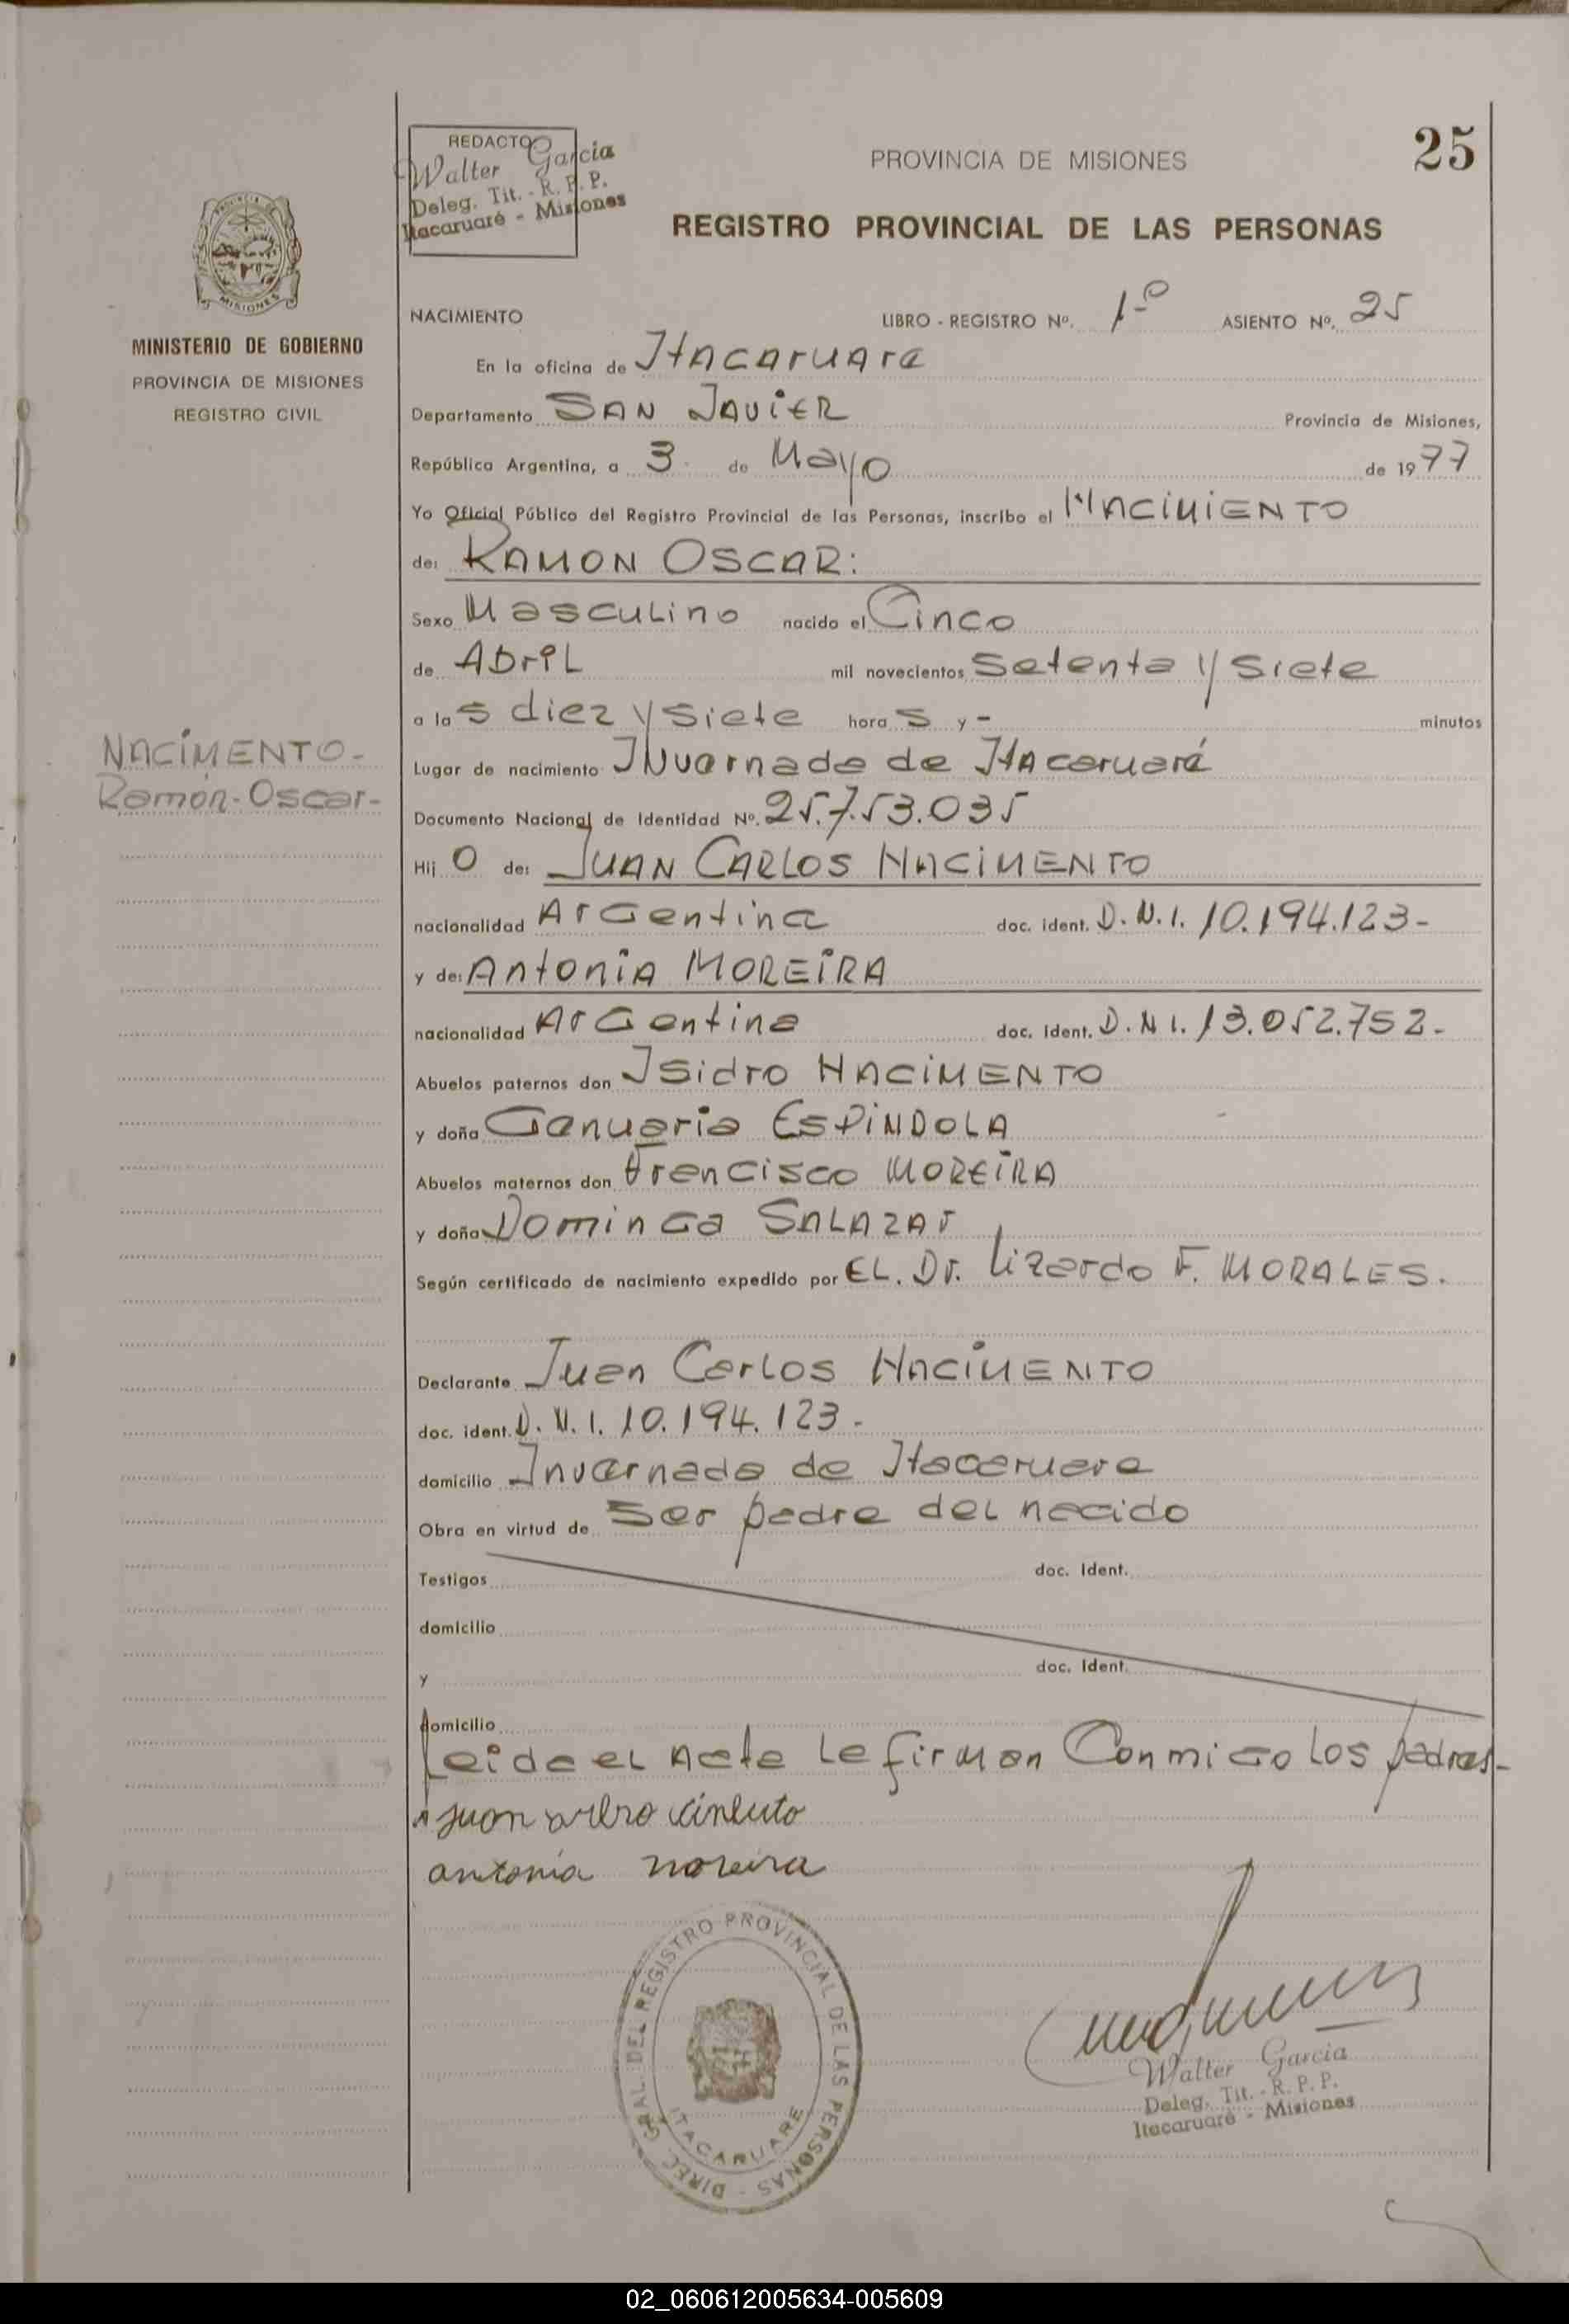 25
REDACTO
Walter Garcia
Deleg. Tit. - R. P. P.
Itacaruaré - Misiones
PROVINCIA DE MISIONES
REGISTRO PROVINCIAL DE LAS PERSONAS
PROVINCIA DE
MISIONES
MINISTERIO DE GOBIERNO
PROVINCIA DE MISIONES
REGISTRO CIVIL
NACIMENTO-
Ramón-Oscar-
NACIMIENTO LIBRO - REGISTRO Nº. 1º ASIENTO Nº. 25
En la oficina de Itacaruare
Departamento SAN JAViER Provincia de Misiones,
República Argentina, a 3 de Mayo de 1977
Yo Oficial Público del Registro Provincial de las Personas, inscribo el NACiMiENTO
de: RAMON OSCAR:
Sexo Masculino nacido el Cinco
de ABriL mil novecientos Setenta y Siete
a las diez y Siete horas y - minutos
Lugar de nacimiento INvernada de Itacaruaré
Documento Nacional de Identidad Nº. 25.753.035
Hijo de: JUAN CARLOS NACiMENTO
nacionalidad Argentina doc. ident. D.N.I. 10.194.123-
y de: Antonia MOREiRA
nacionalidad Argentina doc. ident. D.N.I. 13.052.752-
Abuelos paternos don Isidro NACiMENTO
y doña Genuaria ESPiNDOLA
Abuelos maternos don Francisco MOREiRA
y doña Dominga SALAZAr
Según certificado de nacimiento expedido por EL. Dr. Lizardo F. MORALES.
Declarante Juan Carlos NACiMENTO
doc. ident. D.N.I. 10.194.123-
domicilio Invernada de Itacaruare
Obra en virtud de Ser padre del nacido
Testigos doc. Ident.
domicilio
y doc. Ident.
domicilio
Leida el Acta La firman Conmigo los padres-
Juan
antonia moreira
DIREC. GRAL. DEL REGISTRO PROVINCIAL DE LAS PERSONAS -
ITACARUARE
Walter Garcia
Deleg. Tit. - R. P. P.
Itacaruaré - Misiones
02_060612005634-005609